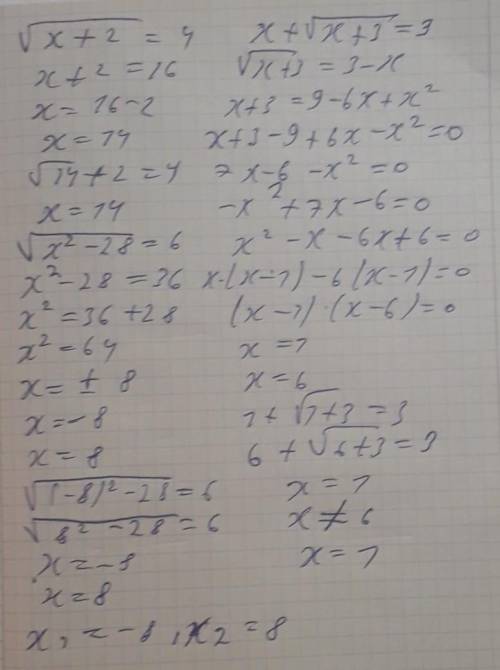 √(x+2) = 4
x+2 = 16
x = 16-2
x = 14
√14+2 = 4
x = 14
√(x²-28) = 6
x²-28 = 36
x² = 36+28
x² = 64
x = ± 8
x = -8
x = 8
√((-8)²-28) = 6
√(8²-28) = 6
x = -8
x = 8
x₁ = -8, x₂ = 8
x+√(x+3) = 3
√(x+3) = 3-x
x+3 = 9-6x+x²
x+3-9+6x-x² = 0
7x-6-x² = 0
-x²+7x-6 = 0
x²-x-6x+6 = 0
x·(x-1)-6(x-1) = 0
(x-1)·(x-6) = 0
x = 1
x = 6
1+√(1+3) = 3
6+√(6+3) = 3
x = 1
x ≠ 6
x = 1